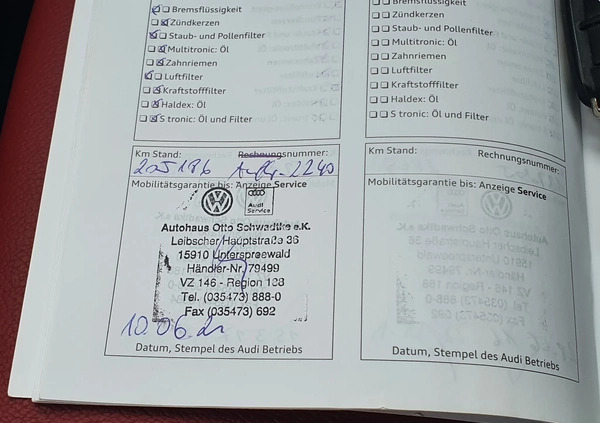 Bremsflüssigkeit
Zündkerzen
Staub- und Pollenfilter
Multitronic: Öl
Zahnriemen
Luftfilter
Kraftstofffilter
Haldex: Öl
S tronic: Öl und Filter
Km Stand: Rechnungsnummer:
205186 Auftr. 2240
Mobilitätsgarantie bis: Anzeige Service
Audi
Service
Autohaus Otto Schwadtke e.K.
Leibscher Hauptstraße 36
15910 Unterspreewald
Händler-Nr. 79499
VZ 146 - Region 138
Tel. (035473) 888-0
Fax (035473) 692
10.06.21
Datum, Stempel des Audi Betriebs
Bremsflüssigkeit
Zündkerzen
Staub- und Pollenfilter
Multitronic: Öl
Zahnriemen
Luftfilter
Kraftstofffilter
Haldex: Öl
S tronic: Öl und Filter
Km Stand: Rechnungsnummer:
Mobilitätsgarantie bis: Anzeige Service
Datum, Stempel des Audi Betriebs